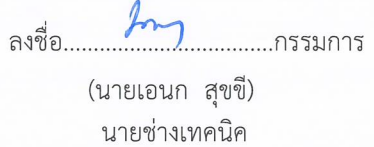 ลงชื่อ...................................กรรมการ
(นายเอนก สุขขี)
นายช่างเทคนิค